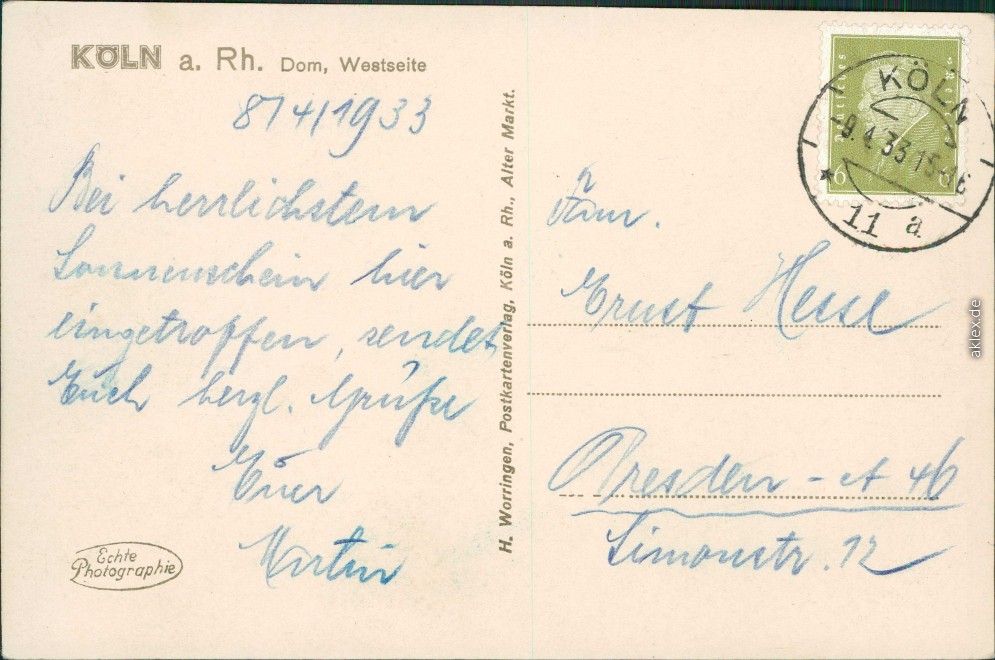 KÖLN a. Rh. Dom, Westseite
8/4/1933
Bei herrlichstem
Sonnenschein hier
eingetroffen, sendet
Euch herzl. Grüße
Euer
Martin
Echte
Photographie
H. Worringen, Postkartenverlag, Köln a. Rh., Alter Markt.
KÖLN
-9.4.33.15-
11 a
6 6
Fam.
Ernst Hesse
Dresden-A 46
Simonstr. 12
aklex.de